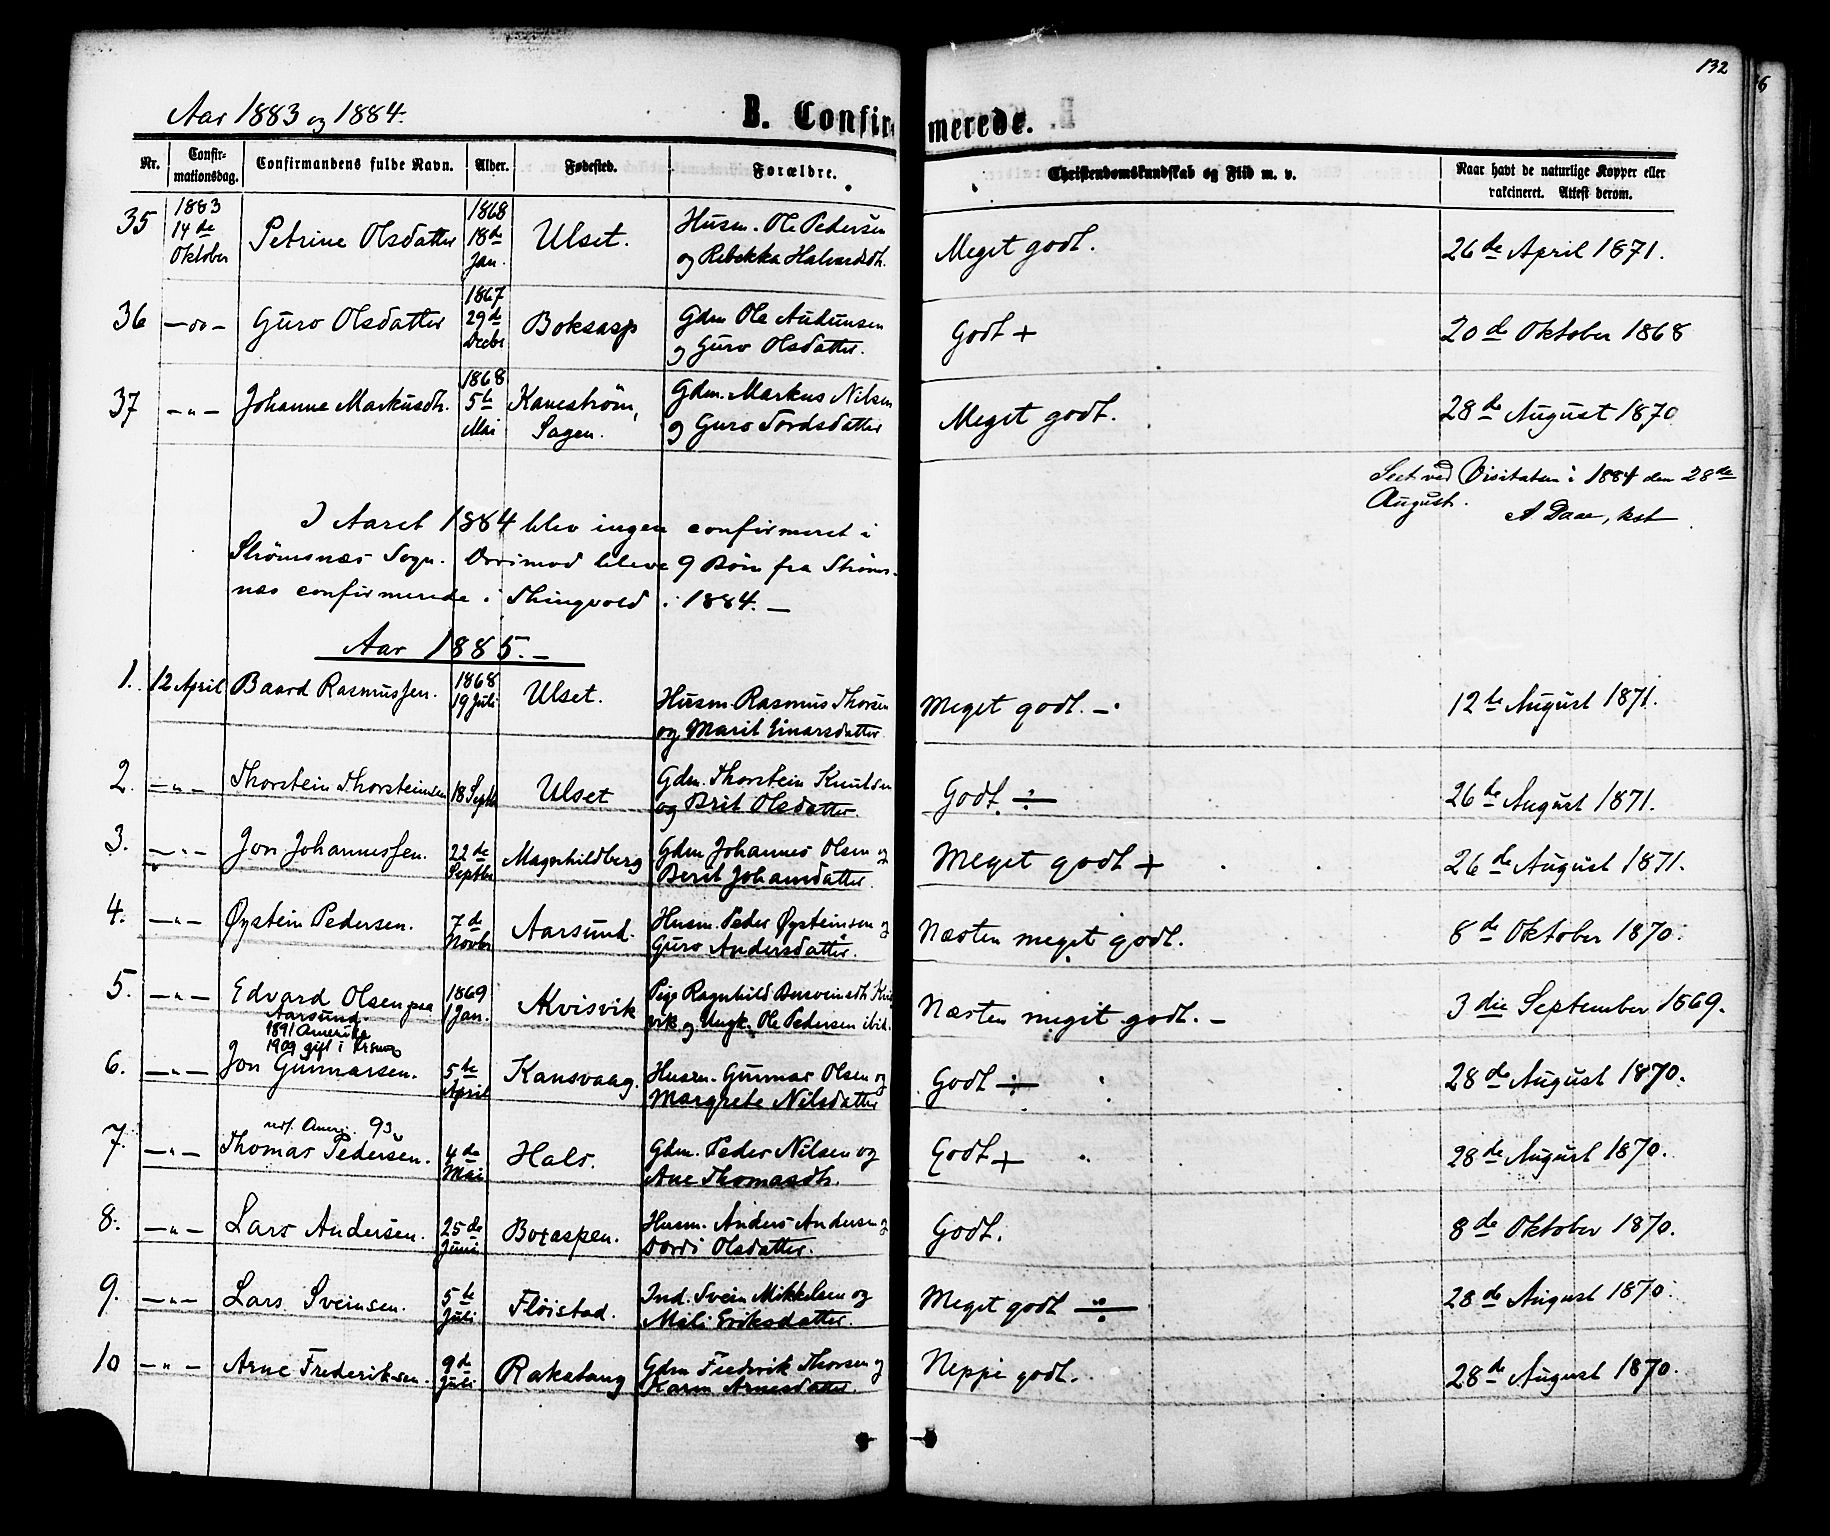 132
6
Aar 1883 og 1884.
B. Confirmerede.
Nr.
Confirmationsdag.
Confirmandens fulde Navn.
Alder.
Fødested.
Forældre.
Christendomskundskab og Flid m. v.
Naar havt de naturlige Kopper eller
vakcineret. Attest derom.
35 1883 14de Oktober Petrine Olsdatter 1868 18de Jan. Ulset. Husm. Ole Pedersen
og Rebekka Halvardsdtr. Meget godt. 26de April 1871.
36 — do — Guro Olsdatter 1867 29de Decbr Boksasp Gdm Ole Audunsen
og Guro Olsdatter. Godt + 20de Oktober 1868
37 — " — Johanne Markusdtr. 1868 5te Mai Kanestrøm, Sagen. Gdm. Markus Nilsen
og Guro Tordsdatter Meget godt. 28de August 1870
Seet ved Visitatsen i 1884 den 28de
August. A Daae, kst
I Aaret 1884 blev ingen confirmeret i
Strømsnæs Sogn. Derimod bleve 9 Børn fra Strøms-
næs confirmerede i Thingvold i 1884. —
Aar 1885. —
1. 12 April Baard Rasmussen. 1868 19 Juli Ulset. Husm Rasmus Thorsen
og Marit Einarsdatter Meget godt. — 12te August 1871.
2. — " — Thorstein Thorsteinsen 18 Septb Ulset Gdm. Thorstein Knutsen
og Brit Olsdatter. Godt ÷ 26de August 1871.
3. — " — Jon Johannessen. 22de Septbr Magnhildberg Gdm Johannes Olsen og
Berit Johansdatter. Meget godt + 26de August 1871.
4. — " — Øystein Pedersen. 7de Novbr Aarsund. Husm. Peder Øysteinsen og
Guro Andersdatter. Næsten meget godt. 8de Oktober 1870.
5. — " — Edvard Olsen paa Aarsund. 1869 1 Jan. Kvisvik Pige Ragnhild
vik og Ungk. Ole Pedersen ibid. Næsten meget godt. — 3die September 1869.
1891 Amerika
1909 gift i
6. — " — Jon Gunnarsen. 5te April Kansvaag. Husm. Gunnar Olsen og
Margrete Nilsdatter Godt ÷ 28de August 1870.
93
7. — " — Thomas Pedersen. 4de Mai Hals. Gdm. Peder Nilsen og
Ane Thomasdtr. Godt + 28de August 1870.
8. — " — Lars Andersen. 25de Juni Boxaspen. Husm. Anders Andersen og
Dordi Olsdatter. Godt. 8de Oktober 1870.
9. — " — Lars Sveinsen. 5te Juli Fløistad. Ind. Svein Mikkelsen og
Mali Eriksdatter. Meget godt ÷ 28de August 1870.
10 — " — Arne Frederiksen. 9de Juli Rakatang Gdm Fredrik Thorsen og
Karen Arnesdatter. Neppe godt. 28de August 1870.